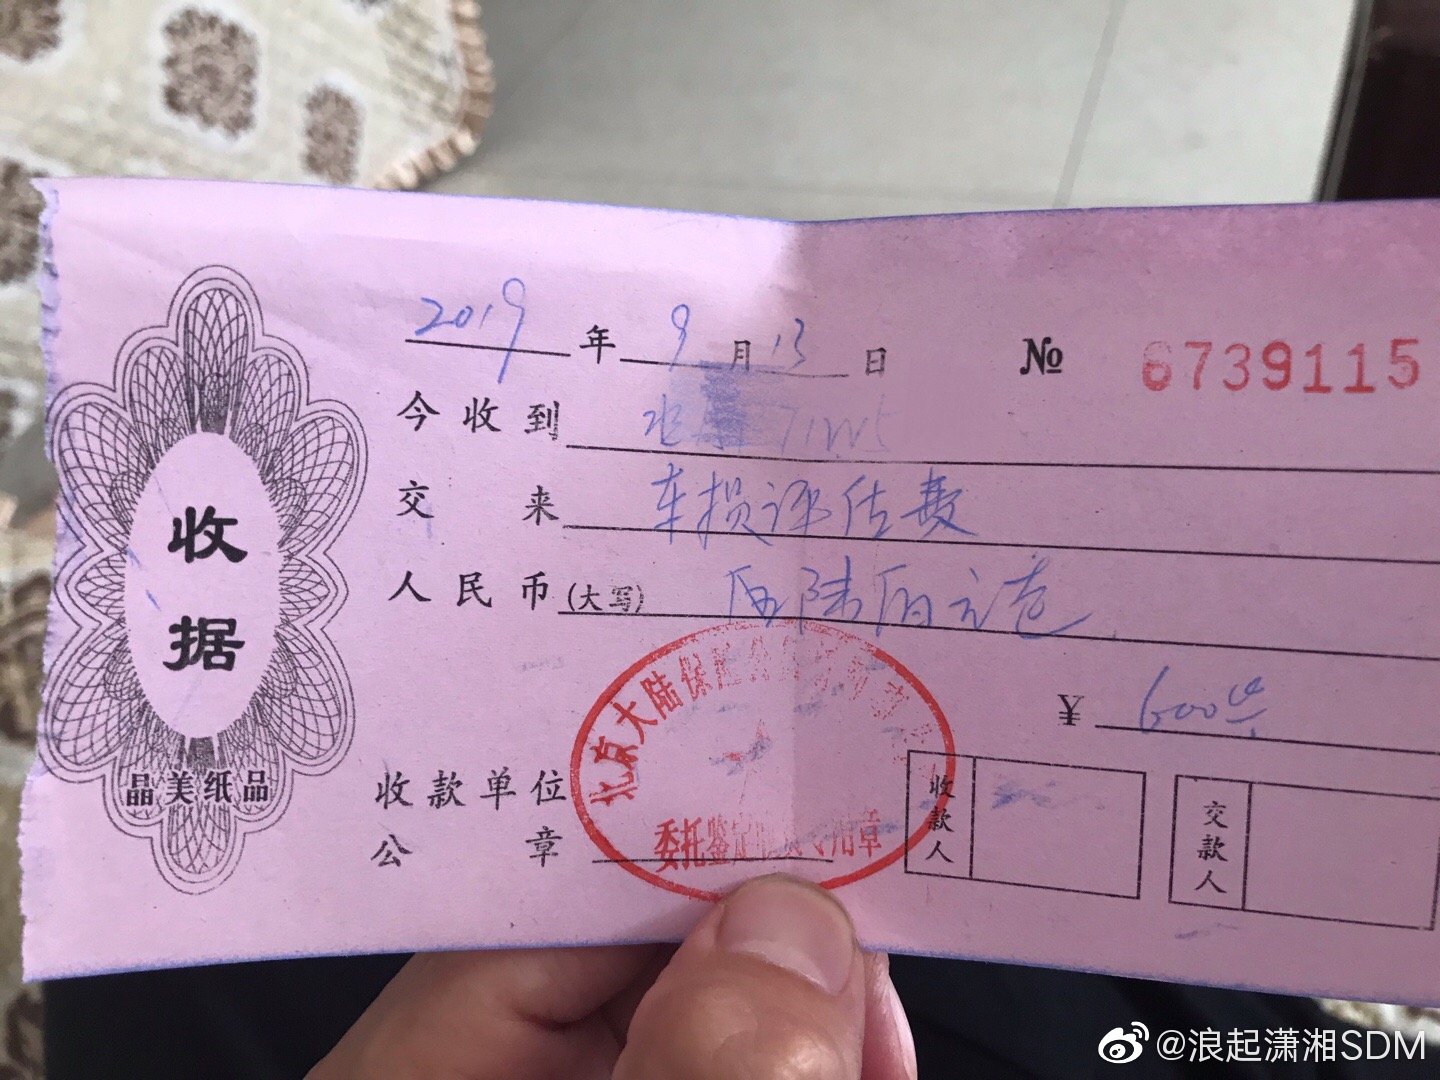 2019年9月13日 № 6739115
今收到
交来 车损评估费
人民币(大写) 陆佰元
¥ 600
收款单位
公章
收款人
交款人
收据
晶美纸品
北京大陆保险公
委托鉴定 用章
@浪起潇湘SDM